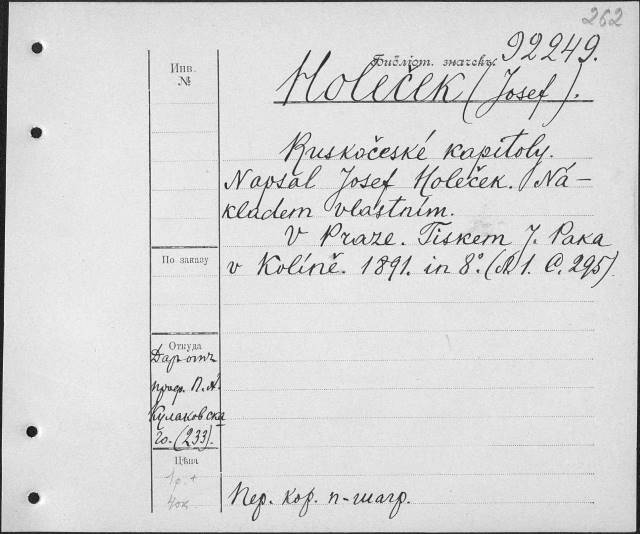 262
Библіот. значекъ 92249.
Инв.
№
Holeček (Josef).
Ruskočeské kapitoly.
Napsal Josef Holeček. Ná-
kladem vlastním.
V Praze. Tiskem J. Paka
По заказу
v Kolíně. 1891. in 8°. (A1. C. 295)
Откуда
Даръ отъ
проф. П. А.
Кулаковска
го. (233).
Цѣна
1р. +
40к
Пер. кор. п-шагр.